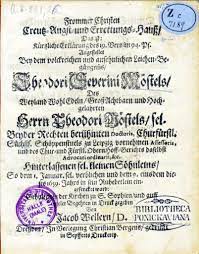 Frommer Christen
Creutz-Angst und Errettungs-Hauß/
Das ist:
Kürtzliche Erklärung des 19. Vers im 94. Ps.
Angestellet
Bey dem volckreichen und ansehnlichen Leichen-Be-
gängnüs/
Theodori Severini Möstels/
Des
Weyland Wohl Edeln/ Groß Achtbarn und Hoch-
gelahrten
Herrn Theodori Möstels/ sel.
Beyder Rechten berühmten Doctoris, Churfürstl.
Sächß. Schöppenstuels zu Leipzig vornehmen Assessoris,
und des Chur- und Fürstl. Ober Hoff-Gerichts daselbst
Actuarii ordinarii, &c.
Hinterlassener sel. kleinen Söhnleins/
So den 1. Januar. sel. verblichen und dem 9. eius dem
1659. Jahrs in sein Ruhebetlein ein-
gesencket ward:
der Kirchen zu S. Sophien und auff
Begehren in Druck gegeben
Von
Jacob Wellern/ D.
Dresden/ In Verlegung Christian Bergens/ gedruckt
Seyfferts Druckerey.
BIBLIOTHECA
PONICKAVIANA